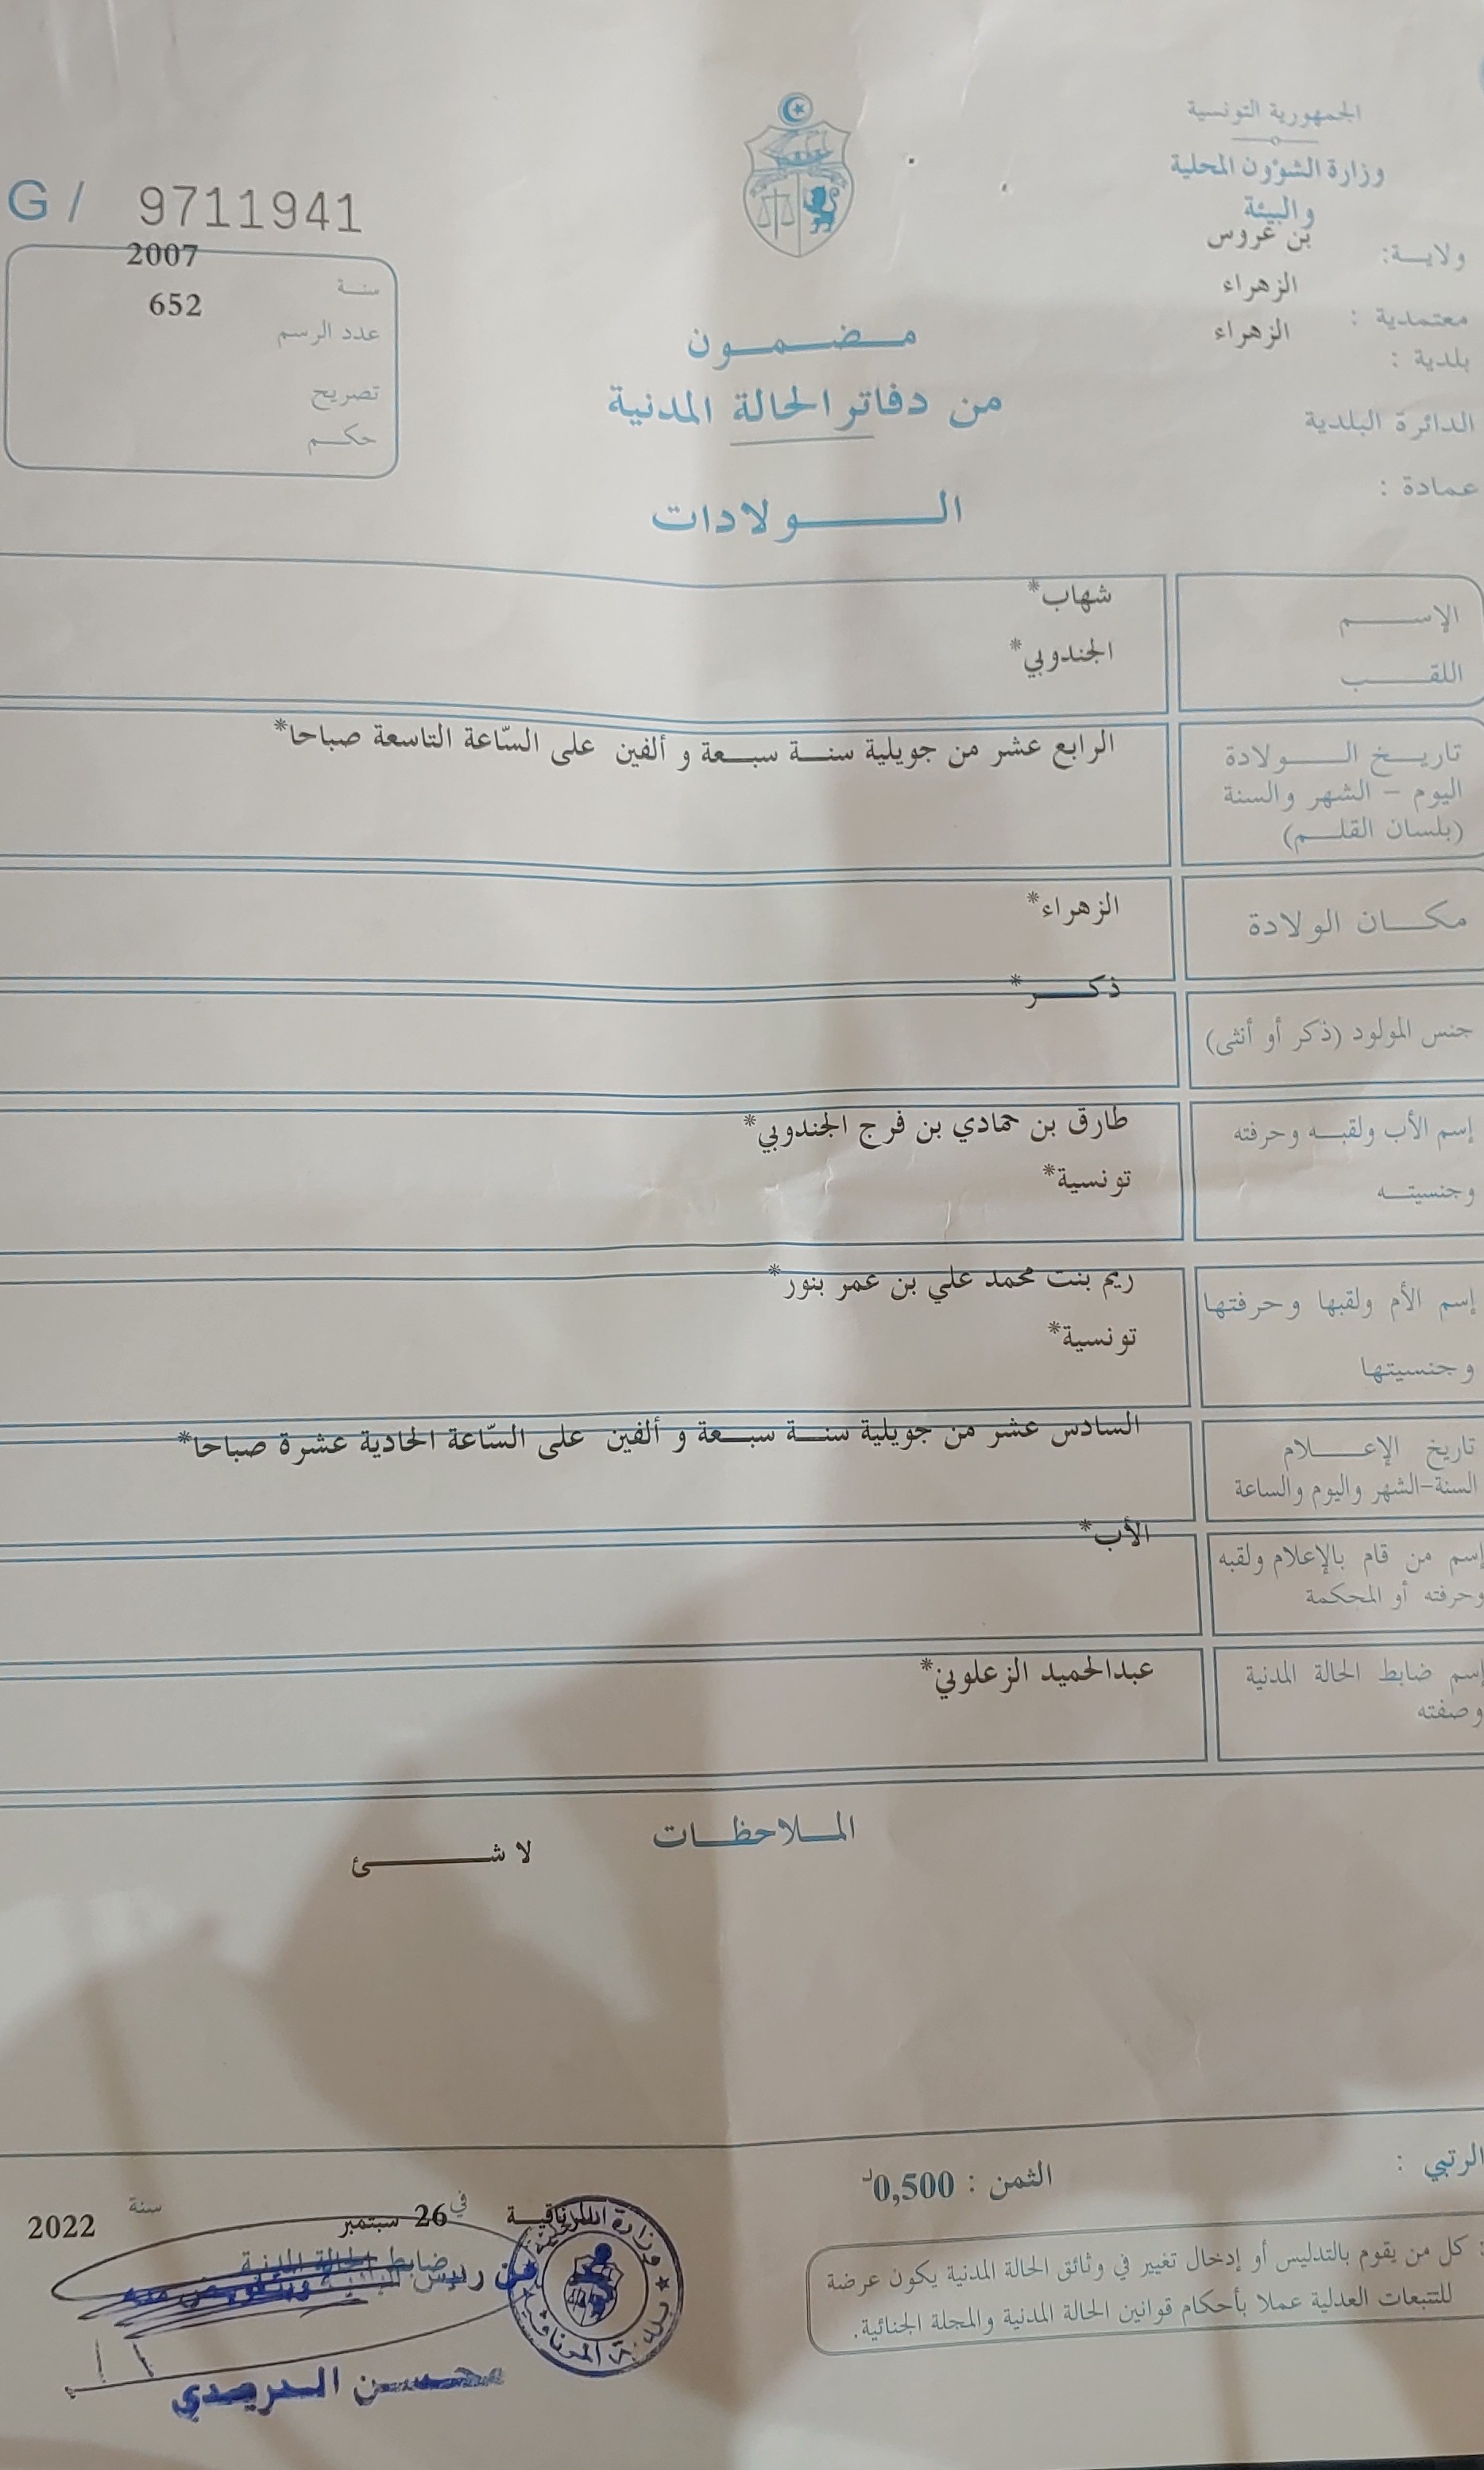 الجمهورية التونسية
وزارة الشؤون المحلية
والبيئة
ولايـــة: بن عروس
معتمدية : الزهراء
بلدية : الزهراء
الدائرة البلدية
عمادة :
G / 9711941
سنـة 2007
عدد الرسم 652
تصريح
حكـم
مـضـمـون
من دفاتر الحالة المدنية
الـــولادات
الإســـم شهاب*
اللقـــب الجندوبي*
تاريـــخ الـــولادة الرابع عشر من جويلية سنـــة سبـــعة و ألفين على السّاعة التاسعة صباحا*
اليوم - الشهر والسنة
(بلسان القلـــم)
مكـــان الولادة الزهراء*
جنس المولود (ذكر أو أنثى) ذكـــر*
إسم الأب ولقبـــه وحرفته طارق بن حمادي بن فرج الجندوبي*
وجنسيتـــه تونسية*
إسم الأم ولقبها وحرفتها ريم بنت محمد علي بن عمر بنور*
وجنسيتها تونسية*
تاريخ الإعـــلام السادس عشر من جويلية سنـــة سبـــعة و ألفين على السّاعة الحادية عشرة صباحا*
السنة-الشهر واليوم والساعة
إسم من قام بالإعلام ولقبه الأب*
وحرفته أو المحكمة
إسم ضابط الحالة المدنية عبدالحميد الزعلوني*
وصفته
الملاحظـــات
لا شـــئ
الرتبي :
الثمن : 0,500د
كل من يقوم بالتدليس أو إدخال تغيير في وثائق الحالة المدنية يكون عرضة
للتتبعات العدلية عملا بأحكام قوانين الحالة المدنية والمجلة الجنائية.
المرناقيـــة في 26 سبتمبر سنة 2022
ضابط الحالة المدنية
عن رئيس البلدية وبتفويض منه
بلدية المرناقية
محسن الدريدي